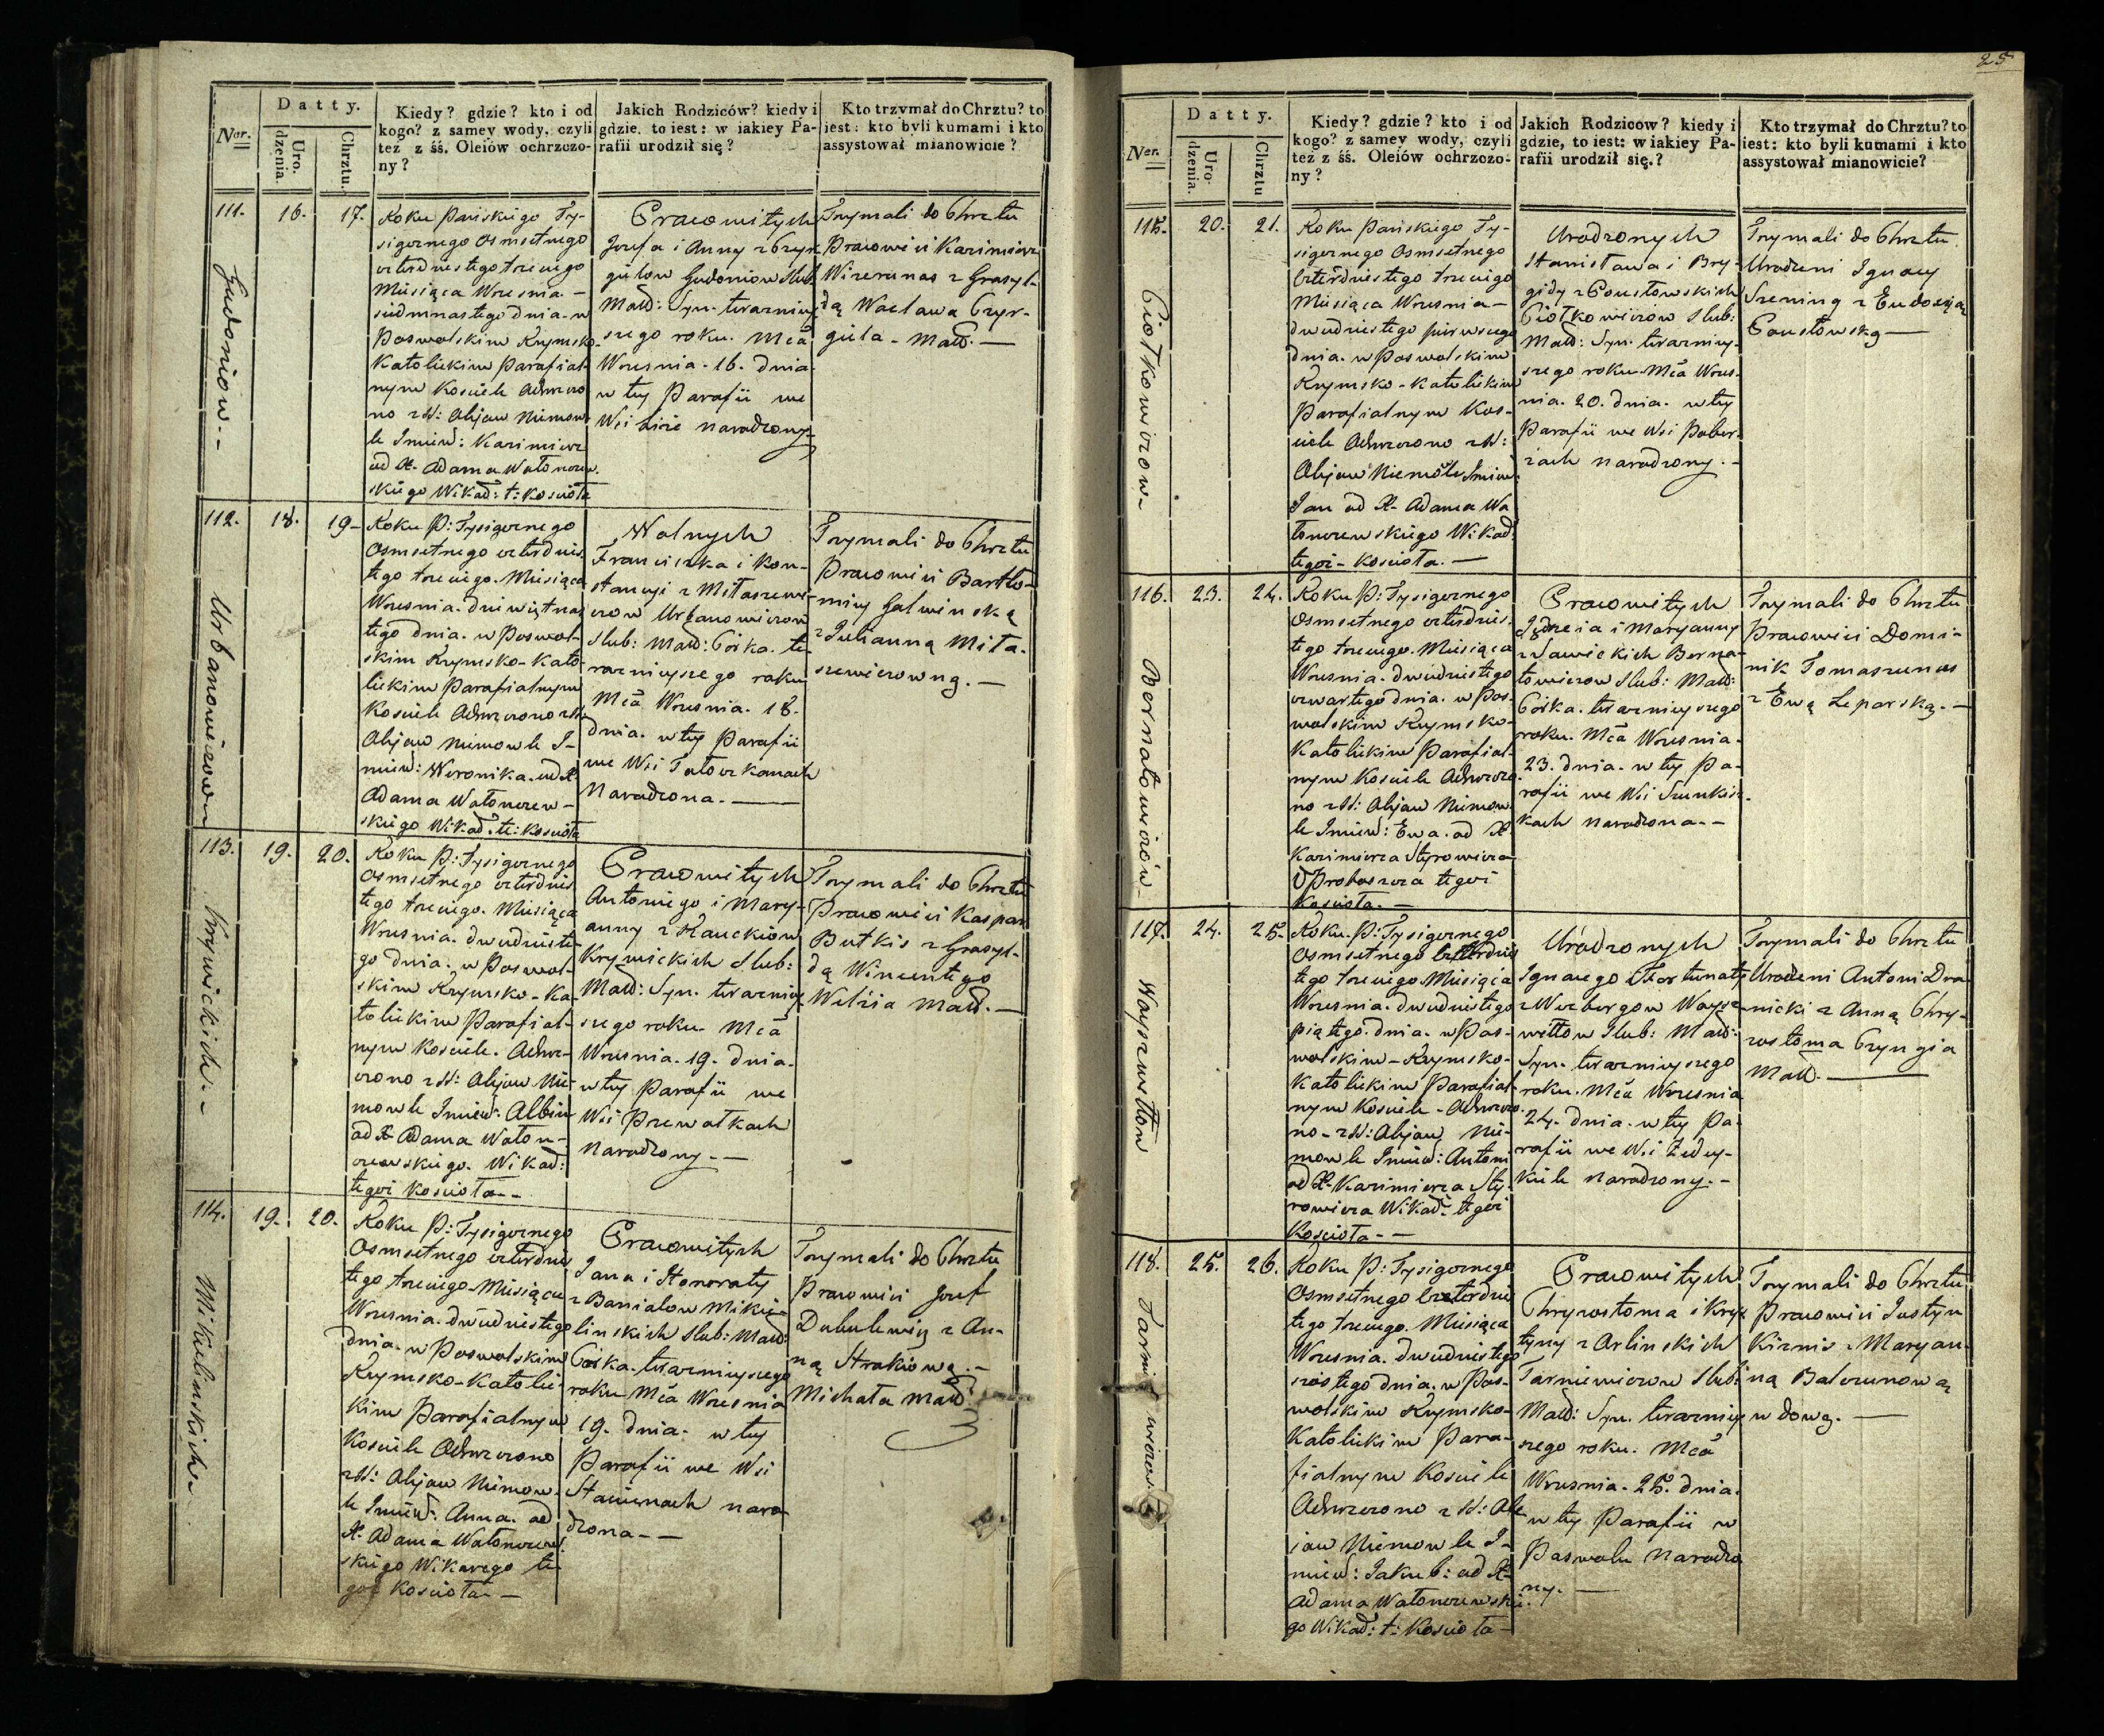 25
Datty.
Ner.
Uro.
dzenia.
Chrztu.
Kiedy? gdzie? kto i od
kogo? z samey wody, czyli
też z śś. Oleiów ochrzczo-
ny?
Jakich Rodziców? kiedy i
gdzie, to iest: w iakiey Pa-
rafii urodził się?
Kto trzymał do Chrztu? to
iest: kto byli kumami i kto
assystował mianowicie?
111.
16.
17.
Gudoniow.-
Roku Pańskiego Ty-
siącznego Osmsetnego
czterdziestego trzeciego
Miesiąca Wrzesnia.-
siedmnastego dnia. w
Poswolskim Rzymsko-
Katolickim Parafial-
nym Kosciele Ochrzczo
no z SS: Olejow Niemow-
le Imied: Kazimierz
od X. Adama Wołonczew-
skiego Wikad: t: Kościoła
Pracowitych
Jozefa i Anny z Czyr-
gulow Gudoniow Slub:
Małż: Syn. teraźniey-
szego roku. Mca
Wrzesnia. 16. dnia
w tey Parafii we
Wsi narodzony.
Trzymali do Chrztu
Pracowici Kazimierz
Wizerunas z Grasyl-
dą Wacława Czyr-
gula. Małż.-
112.
18.
19-
Urbanowiczow
Roku P: Tysiącznego
Osmsetnego czterdzies
tego trzeciego. Miesiąca
Wrzesnia. dziewiętnas
tego dnia. w Poswol-
skim Rzymsko-Kato-
lickim Parafialnym
Kosciele Ochrzczono z SS:
Olejow Niemowle I-
mied: Weronika. od X.
Adama Wołonczew-
skiego Wikad: te: Kościoła
Wolnych
Franciszka i Kon-
stancyi z Mitaszewi-
czow Urbanowiczow
Slub: Małż: Córka. te-
raźnieyszego roku
Mca Wrzesnia. 18.
dnia. w tey Parafii
we Wsi Tatorkanach
Narodzona.-
Trzymali do Chrztu
Pracowici Bartło-
miey Galwinską
z Julianną Mita-
szewiczowną.-
113.
19.
20.
Krzywickich.-
Roku P: Tysiącznego
Osmsetnego czterdzies
tego trzeciego. Miesiąca
Wrzesnia. dwudzieste-
go dnia. w Poswol-
skim Rzymsko-Ka-
tolickim Parafial-
nym Kosciele. Ochrz-
czono z SS: Olejow Nie-
mowle Imied: Albin
od X. Adama Wołon-
czewskiego. Wikad:
tegoż Kościoła.-
Pracowitych
Antoniego i Mary-
anny z Kauckiow
Krzywickich Slub:
Małż: Syn. teraźniey-
szego roku. Mca
Wrzesnia. 19. dnia.
w tey Parafii we
Wsi Przewalkach
Narodzony.-
Trzymali do Chrztu
Pracowici Kasper
Butkis z Grasyl-
dą Wincentego
Welzia Małż.-
114.
19.
20.
Mikulinskich
Roku P: Tysiącznego
Osmsetnego czterdzies
tego trzeciego. Miesiąca
Wrzesnia. dwudziestego
dnia. w Poswolskim
Rzymsko-Katolic-
kim Parafialnym
Kosciele Ochrzczono
z SS: Olejow Niemow-
le Imied: Anna. od
X. Adama Wołonczew
skiego Wikarego te-
goż Kościoła.-
Pracowitych
Jana i Honoraty
z Baniałow Miku-
linskich Slub: Małż:
Córka. teraźnieyszego
roku Mca Wrzesnia
19. dnia. w tey
Parafii we Wsi
Staciunach naro
dzona.-
Trzymali do Chrztu
Pracowici Jozef
Dubulewicz z An-
ną Strakiową.-
Michała Małż.
Datty.
Ner.
Uro.
dzenia.
Chrztu
Kiedy? gdzie? kto i od
kogo? z samey wody, czyli
też z śś. Oleiów ochrzczo-
ny?
Jakich Rodzicow? kiedy i
gdzie, to iest: w iakiey Pa-
rafii urodził się.?
Kto trzymał do Chrztu? to
iest: kto byli kumami i kto
assystował mianowicie?
115.
20.
21.
Piotkowiczow-
Roku Pańskiego Ty-
siącznego Osmsetnego
czterdziestego trzeciego
Miesiąca Wrzesnia-
dwudziestego pierwszego
dnia. w Poswolskim
Rzymsko-Katolickim
Parafialnym Kos-
ciele Ochrzczono z SS:
Olejow Niemowle Imied:
Jan od X. Adama Wo
łonczewskiego Wikad:
tegoż-Kościoła.-
Urodzonych
Stanisława i Bry-
gidy z Poustowskich
Piotkowiczow Slub:
Małż: Syn. teraźniey-
szego roku. Mca Wrzes-
nia. 20. dnia. w tey
Parafii we Wsi Pober-
żach narodzony.-
Trzymali do Chrztu
Urodzeni Ignacy
Szening z Eudoxyą
Poustowską-
116.
23.
24.
Bernatowiczów-
Roku P: Tysiącznego
Osmsetnego czterdzies
tego trzeciego. Miesiąca
Wrzesnia. dwudziestego
czwartego dnia. w Pos-
wolskim Rzymsko-
Katolickim Parafial-
nym Kosciele Ochrzczo
no z SS: Olejow Niemow-
le Imied: Ewa. od X.
Kazimierza Styrowicza
Proboszcza tegoż
Kościoła.-
Pracowitych
Jędrzeia i Maryanny
z Sawickich Berna-
towiczow Slub: Małż:
Córka. teraźnieyszego
roku. Mca Wrzesnia.
23. dnia. w tey Pa-
rafii we Wsi Szunkisz-
kach narodzona.-
Trzymali do Chrztu
Pracowici Domi-
nik Tomaszunas
z Ewą Leparską.-
117.
24.
25.
Wayszwiłłow
Roku. P: Tysiącznego
Osmsetnego czterdzies
tego trzeciego Miesiąca
Wrzesnia. dwudziestego
piątego. dnia. w Pos-
wolskim-Rzymsko-
Katolickim Parafial-
nym Kosciele-Ochrzczo
no-z SS: Olejow Nie-
mowle Imied: Antoni
od X. Kazimierza Sty-
rowicza Wikad: tegoż
Kościoła.-
Urodzonych
Ignacego i Fortunaty
z Werbergow Waysz-
wiłłow Slub: Małż:
Syn. teraźnieyszego
roku. Mca Wrzesnia
24. dnia. w tey Pa-
rafii we Wsi Zedey-
kiele narodzony.-
Trzymali do Chrztu
Urodzeni Antoni Dra
nicki z Anną Chry-
zostoma Czyngia
Małż.-
118.
25.
26.
Roku P: Tysiącznego
Osmsetnego czterdzies
tego trzeciego. Miesiąca
Wrzesnia. dwudziestego
szostego dnia. w Pos-
wolskim Rzymsko-
Katolickim Para-
fialnym Kosciele
Ochrzczono z SS: Ole
iow Niemowle I-
mied: Jakub: od X.
Adama Wołonczewskie
go Wikad: t: Kościoła-
Pracowitych
Chryzostoma i Krys
tyny z Arlinskich
Tarniewiczow Slub:
Małż: Syn. teraźniey
szego roku. Mca
Wrzesnia. 25. dnia.
w tey Parafii w
Poswolu Narodzo
ny.-
Trzymali do Chrztu
Pracowici Justyn
Kirnis z Maryan-
ną Balczunową
wdową.-